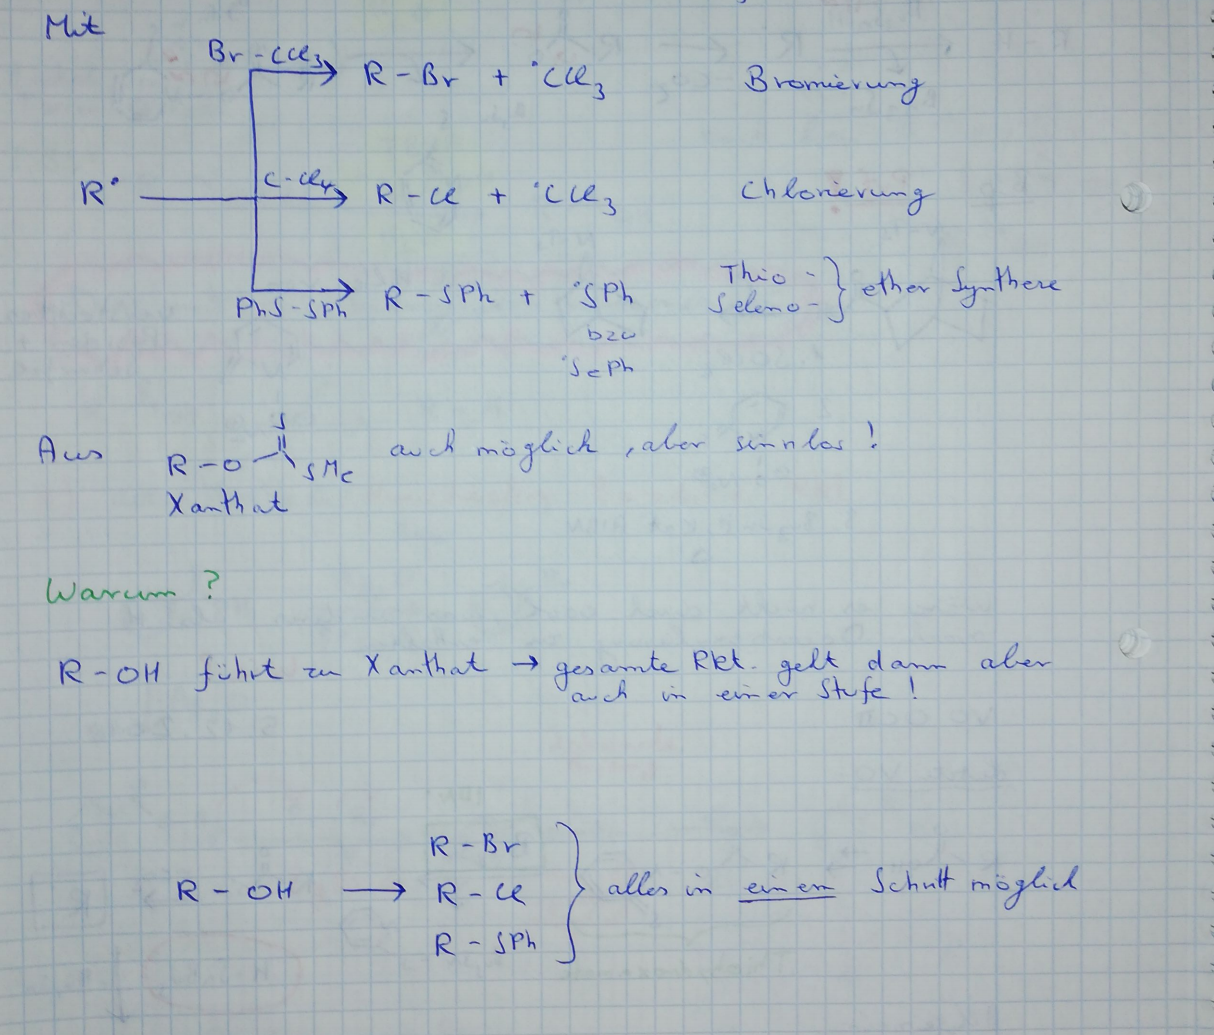 Mit
Br-CCl₃
R-Br + ˙CCl₃ Bromierung
C-Cl₄
R˙ R-Cl + ˙CCl₃ Chlorierung
PhS-SPh
R-SPh + ˙SPh Thio- } ether Synthese
Seleno-
bzw
˙SePh
S
Aus R-O SMe auch möglich, aber sinnlos!
Xanthat
Warum?
R-OH führt zu Xanthat → gesamte Rkt. geht dann aber
auch in einer Stufe!
R-Br
R-OH → R-Cl } alles in einem Schritt möglich
R-SPh